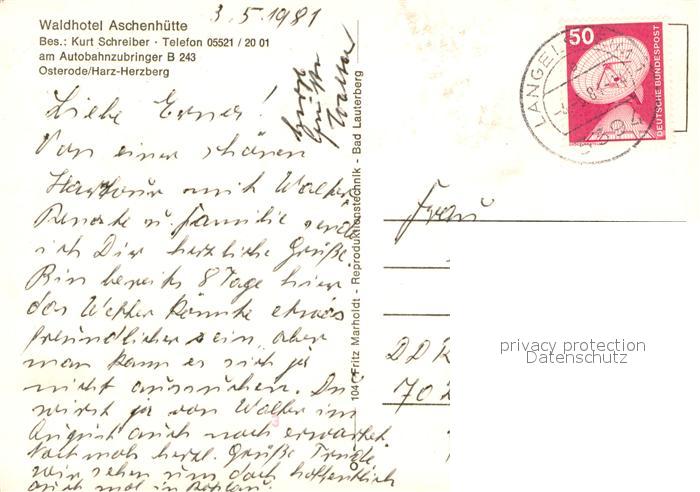 3.5.1981
Waldhotel Aschenhütte
Bes.: Kurt Schreiber · Telefon 05521 / 20 01
am Autobahnzubringer B 243
Osterode/Harz-Herzberg
Liebe Erna!
Von einer schönen
Harztour mit Walter
Renate u. Familie sende
ich Dir herzliche Grüße.
Bin bereits 8 Tage hier
das Wetter könnte etwas
freundlicher sein, aber
man kann es sich ja
nicht aussuchen. Du
wirst ja von Walter im
August auch noch erwartet.
Nochmals herzl. Grüße Trude
wir sehen uns doch hoffentlich
auch mal in
Herzl.
Grüße
Walter
104 Fritz Marholdt - Reproduktionstechnik - Bad Lauterberg
50
DEUTSCHE BUNDESPOST
LANGEL
394
Frau
DDR
702
privacy protection
Datenschutz